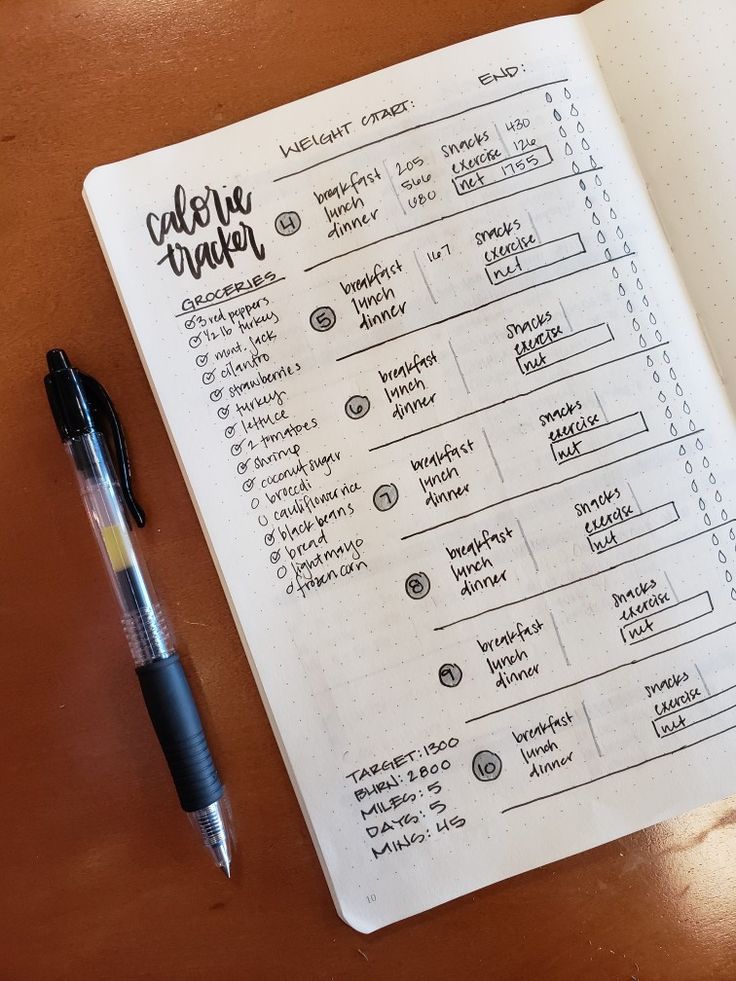 WEIGHT START: END:
calorie
tracker
GROCERIES
3 red peppers
1/2 lb turkey
mont. jack
cilantro
strawberries
turkey
lettuce
2 tomatoes
shrimp
coconut sugar
broccoli
cauliflower rice
black beans
bread
light mayo
frozen corn
TARGET: 1300
BURN: 2800
MILES: 5
DAYS: 5
MINS: 45
10
4
breakfast 205 snacks 430
lunch 566 exercise 126
dinner 680 net 1755
5
breakfast 167 snacks
lunch exercise
dinner net
6
breakfast snacks
lunch exercise
dinner net
7
breakfast snacks
lunch exercise
dinner net
8
breakfast snacks
lunch exercise
dinner net
9
breakfast snacks
lunch exercise
dinner net
10
breakfast snacks
lunch exercise
dinner net